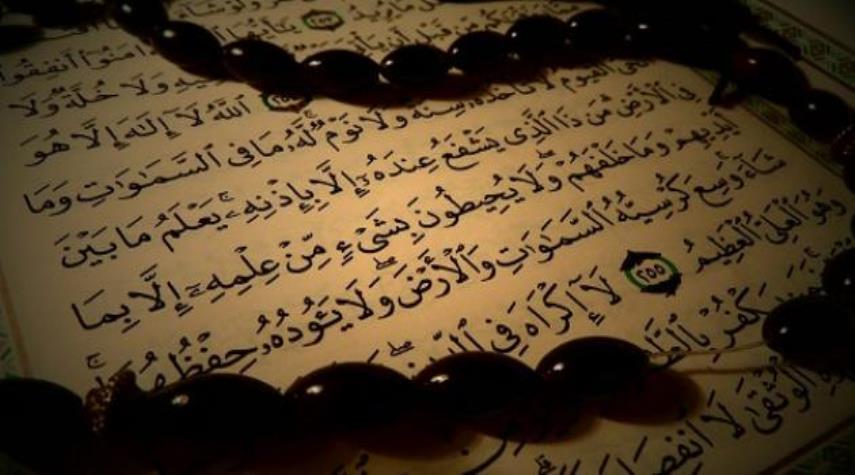 مَا يُرِيدُ ٢٥٣ يَٰٓأَيُّهَا ءَامَنُوٓا۟ أَنفِقُوا۟
قَبْلِ أَن وَلَا خُلَّةٌ وَلَا
ٱللَّهُ لَآ إِلَٰهَ إِلَّا هُوَ
ٱلْقَيُّومُ لَا تَأْخُذُهُۥ سِنَةٌ وَلَا نَوْمٌ لَّهُۥ مَا فِى ٱلسَّمَٰوَٰتِ وَمَا
فِى ٱلْأَرْضِ مَن ذَا ٱلَّذِى يَشْفَعُ عِندَهُۥٓ إِلَّا بِإِذْنِهِۦ يَعْلَمُ مَا بَيْنَ
أَيْدِيهِمْ وَمَا خَلْفَهُمْ وَلَا يُحِيطُونَ بِشَىْءٍ مِّنْ عِلْمِهِۦٓ إِلَّا بِمَا
شَآءَ وَسِعَ كُرْسِيُّهُ ٱلسَّمَٰوَٰتِ وَٱلْأَرْضَ وَلَا يَـُٔودُهُۥ حِفْظُهُمَا
وَهُوَ ٱلْعَلِىُّ ٱلْعَظِيمُ ٢٥٥ لَآ إِكْرَاهَ فِى
يَكْفُرْ
ٱلْوُثْقَىٰ لَا